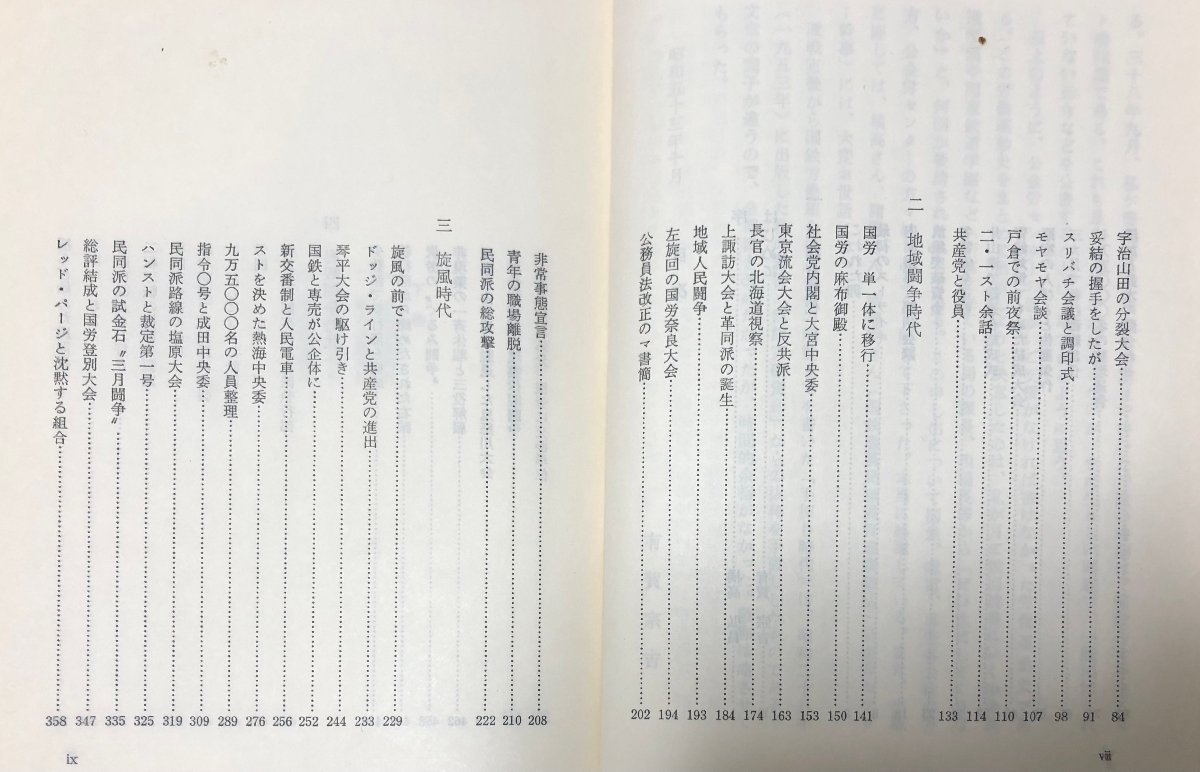 宇治山田の分裂大会 84
妥結の握手をしたが 91
スリバチ会議と調印式 98
モヤモヤ会談 107
戸倉での前夜祭 110
二・一スト余話 114
共産党と役員 133
二 地域闘争時代
国労 単一体に移行 141
国労の麻布御殿 150
社会党内閣と大宮中央委 153
東京流会大会と反共派 163
長官の北海道視察 174
上諏訪大会と革同派の誕生 184
地域人民闘争 193
左旋回の国労奈良大会 194
公務員法改正のマ書簡 202
viii
非常事態宣言 208
青年の職場離脱 210
民同派の総攻撃 222
三 旋風時代
旋風の前で 229
ドッジ・ラインと共産党の進出 233
琴平大会の駆け引き 244
国鉄と専売が公企体に 252
新交番制と人民電車 256
ストを決めた熱海中央委 276
九万五〇〇〇名の人員整理 289
指令〇号と成田中央委 309
民同派路線の塩原大会 319
ハンストと裁定第一号 325
民同派の試金石〝三月闘争〟 335
総評結成と国労登別大会 347
レッド・パージと沈黙する組合 358
ix